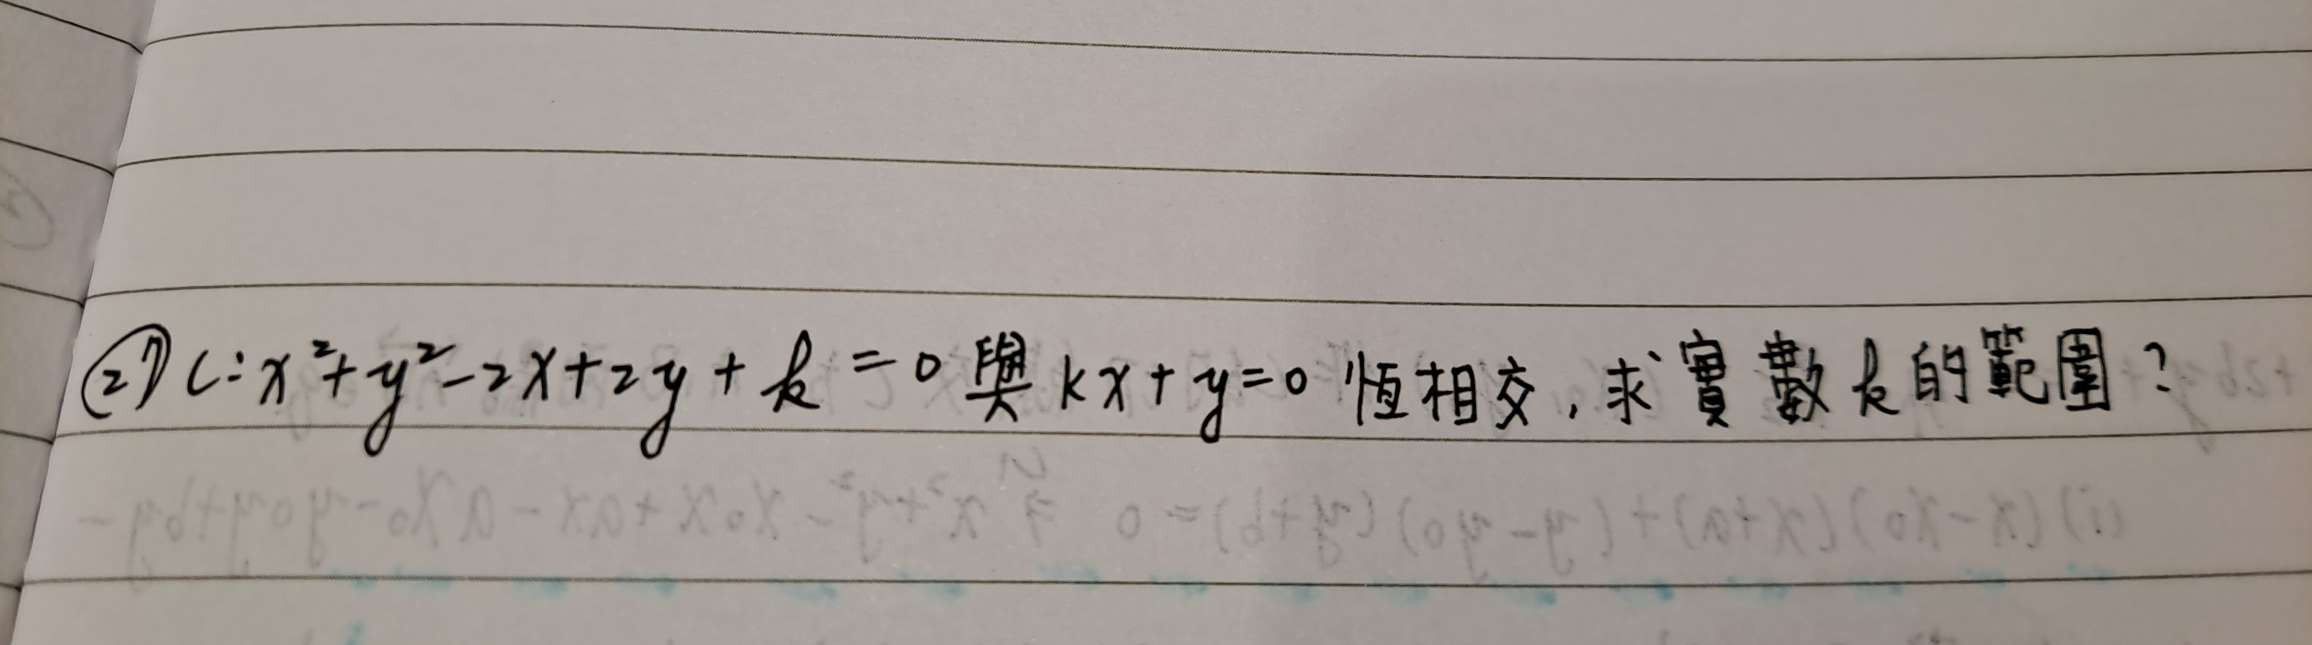 (27) C:x²+y²-2x+2y+k=0與kx+y=0恆相交,求實數k的範圍?